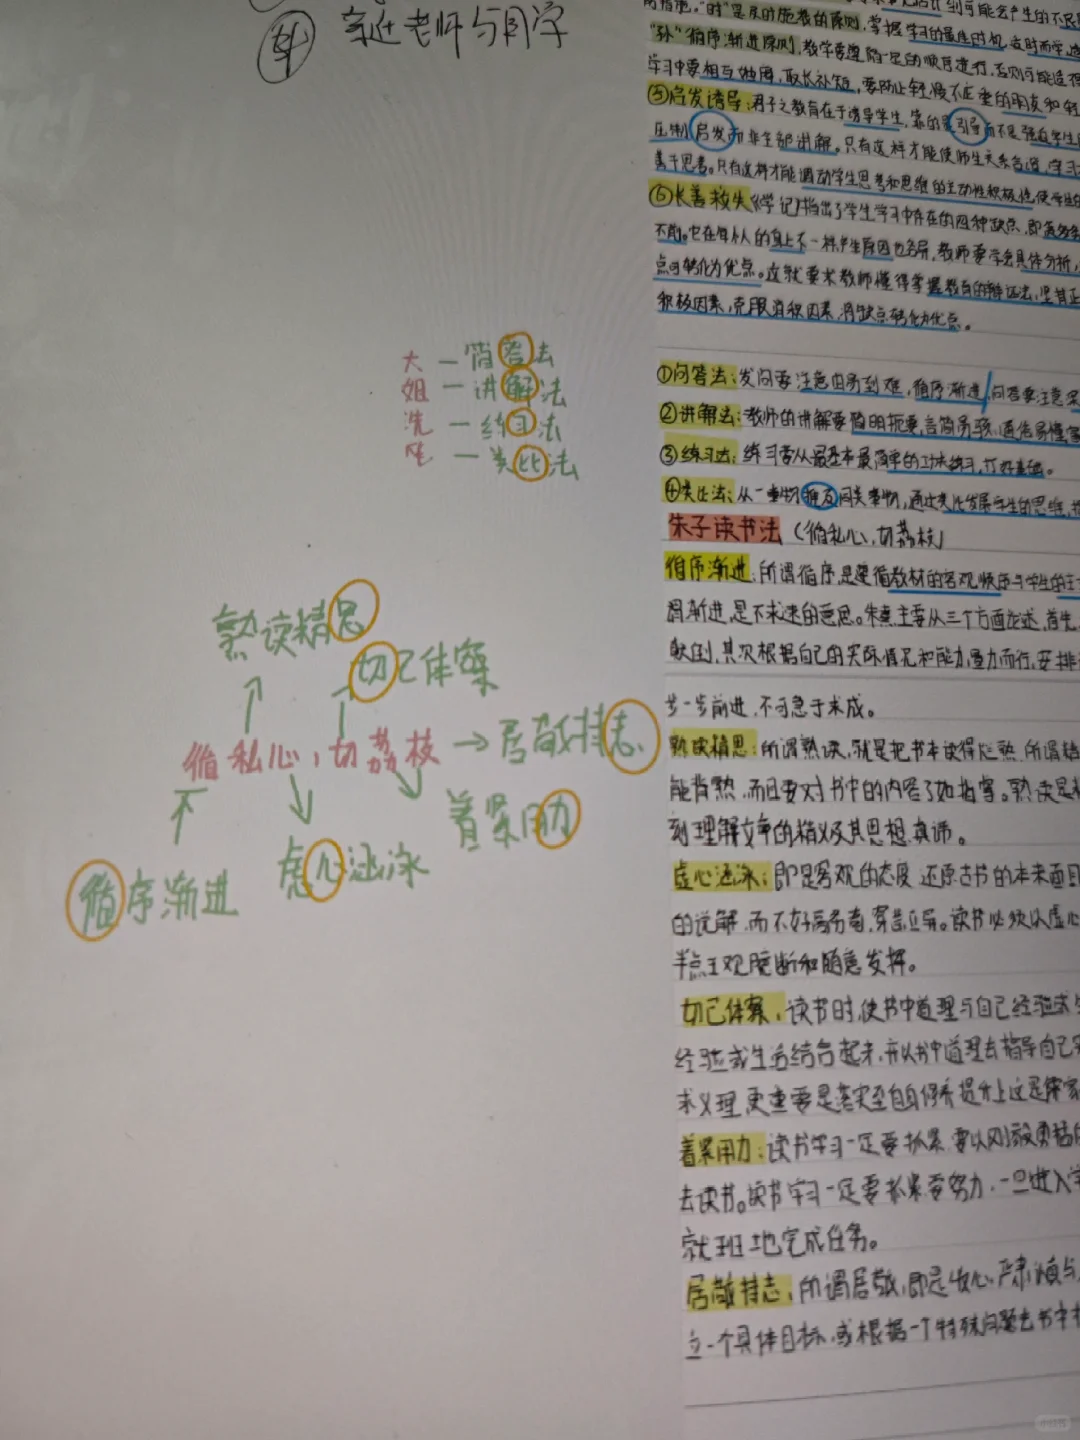 亲近老师与同学
大 — 简答法
姐 — 讲解法
洗 — 练习法
— 类比法
熟读精思
切己体察
循私心,切荔枝 → 居敬持志
着紧用力
虚心涵泳
循序渐进
"孙"循序渐进原则,教学要遵循一定的顺序进行,否则可能适得
学习中要相互观摩,取长补短,要防止轻慢不庄重的朋友和
⑤启发诱导:君子之教育在于诱导学生,靠的是引导而不是强迫学生
压制,启发而非全部讲解。只有这样才能使师生关系合谐,学习
善于思考。只有这样才能调动学生思考和思维的主动性积极性,使学生
⑥长善救失《学记》指出了学生学习中存在的四种缺点,即
不能。它在每个人的身上不一样,产生原因也各异,教师要学会具体分析,
点可转化为优点。这就要求教师懂得掌握教育的辩证法,坚其正
积极因素,克服消积因素,将缺点转化为优点。
①问答法:发问要注意由易到难,循序渐进,问答要注意
②讲解法:教师的讲解要简明扼要,言简易赅,通俗易懂
③练习法:练习要从最基本最简单的功夫练习,打好基础。
④类比法:从一事物推及同类事物,通过类比发展学生的思维,
朱子读书法 (循私心,切荔枝)
循序渐进:所谓循序,是遵循教材的客观顺序与学生的主
谓渐进,是不求速的意思。朱熹主要从三个方面论述,首先,
其次根据自己的实际情况和能力,量力而行,安排
步一步前进,不可急于求成。
熟读精思:所谓熟读,就是把书本读得烂熟,所谓精
能背熟,而且要对书中的内容了如指掌。熟读是
刻理解文章的精义及其思想真谛。
虚心涵泳:即是客观的态度,还原古书的本来面目
的说解,而不好高务奇,穿凿立异。读书必须以虚心
半点主观臆断和随意发挥。
切己体察:读书时,使书中道理与自己经验或生
经验或生活结合起来,并以书中道理去指导自己
求义理,更重要是落实至自身修养提升上这是
着紧用力:读书学习一定要抓紧,要以刚毅勇猛的
去读书。读书学习一定要抓紧要努力,一旦进入学
就 地完成任务。
居敬持志:所谓居敬,即是收心,严肃谨慎与
立一个具体目标,或根据一个特殊问题去书中